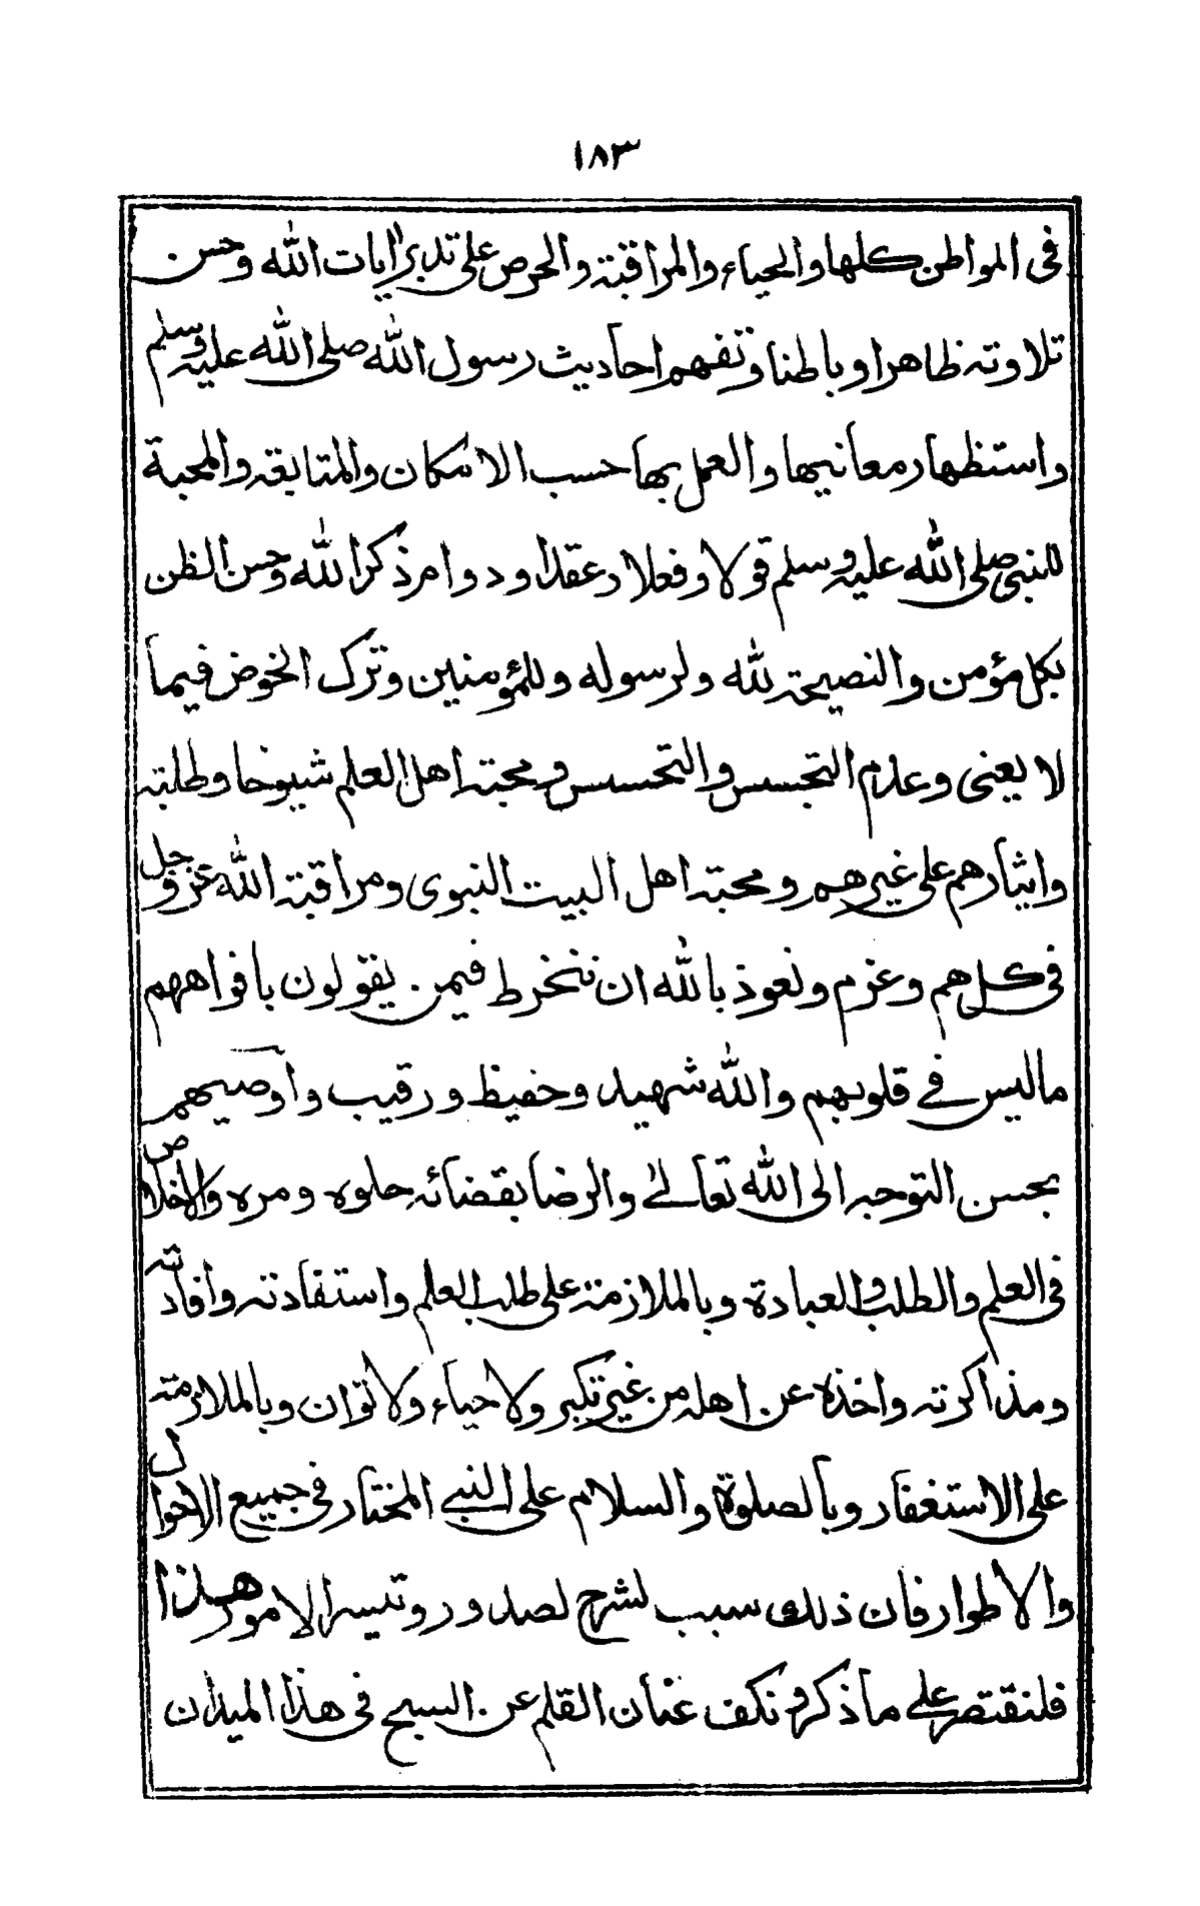 ١٨٣
فى المواطن كلها والحياء والمراقبة والحرص على تدبر ايات الله وحسن
تلاوته ظاهرا وباطنا وتفهم احاديث رسول الله صلى الله عليه وسلم
واستظهار معانيها والعمل بها حسب الامكان والمتابقة والمحبة
للنبى صلى الله عليه وسلم قولا وفعلا وعقدا ودوام ذكر الله وحسن الظن
بكل مؤمن والنصيحة لله ولرسوله وللمؤمنين وترك الخوض فيما
لا يعنى وعدم التجسس والتحسس ومحبة اهل العلم شيوخا وطلبة
وايثارهم على غيرهم ومحبة اهل البيت النبوى ومراقبة الله عز وجل
فى كل هم وعزم ونعوذ بالله ان ننخرط فيمن يقولون بافواههم
ما ليس فى قلوبهم والله شهيد وحفيظ ورقيب واوصيهم
بحسن التوجه الى الله تعالى والرضا بقضائه حلوه ومره والاخلاص
فى العلم والطلب والعبادة وبالملازمة على طلب العلم واستفادته وافادته
ومذاكرته واخذه عن اهله من غير تكبر ولا حياء ولا توان وبالملازمة
على الاستغفار وبالصلوة والسلام على النبى المختار فى جميع الاحوال
والاطوار فان ذلك سبب لشرح لصدور وتيسر الامور هذا
فلنقتصر على ما ذكر ونكف عنان القلم عن السبح فى هذا الميدان